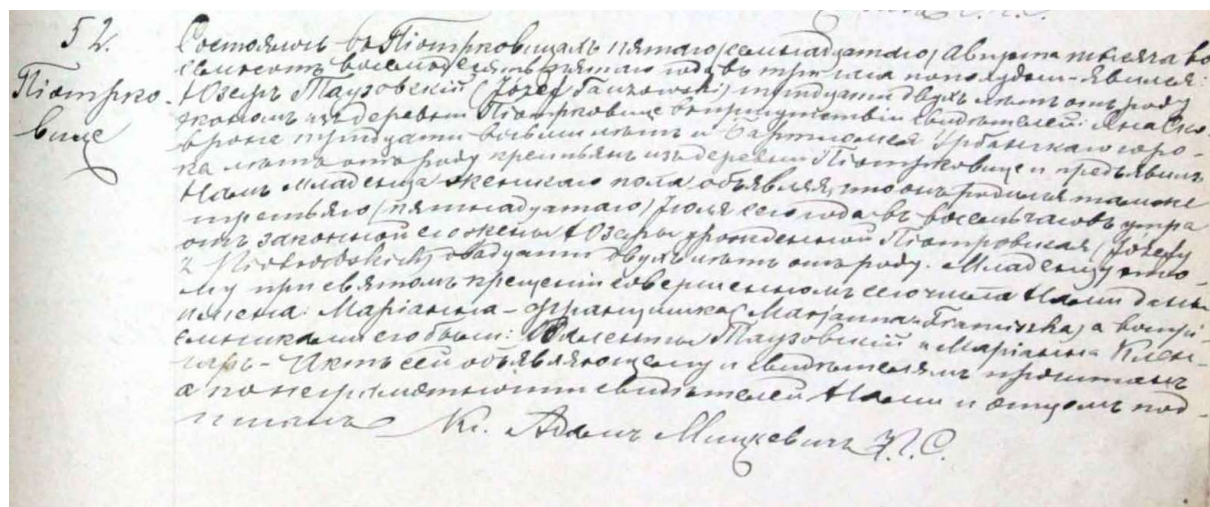 52.
Піотрко-
вице
Состоялось въ Піотрковицахъ пятаго (семнадцатаго) Августа тысяча во
семьсотъ восемьдесятъ пятаго года въ три часа пополудни. Явился:
Юзефъ Таузовскій (Józef Tauzowski) тридцати двухъ лѣтъ отъ роду
экономъ изъ деревни Піотрковице въ присутствіи свидѣтелей: Яна Ско
вроне тридцати восьми лѣтъ и Бартломея Урбанскаго соро-
ка лѣтъ отъ роду крестьянъ изъ деревни Піотрковице и предъявилъ
Намъ младенца женскаго пола объявляя, что онъ родился тамже
третьяго (пятнадцатаго) Іюля сего года въ восемь часовъ утра
отъ законной его жены Юзефы урожденной Піотровская (Józefy
z Piotrowskich) двадцати двухъ лѣтъ отъ роду. Младенцу это
му при святомъ крещеніи совершенномъ сего числа Нами дано
имена: Маріанна-Францишка (Marjanna-Franciszka) а воспрі-
емниками его были: Валенты Таузовскій и Маріанна
Актъ сей объявляющему и свидѣтелямъ прочитанъ
а по неграмотности свидѣтелей Нами и отцомъ под-
писанъ Кс. Адамъ Мицкевичъ